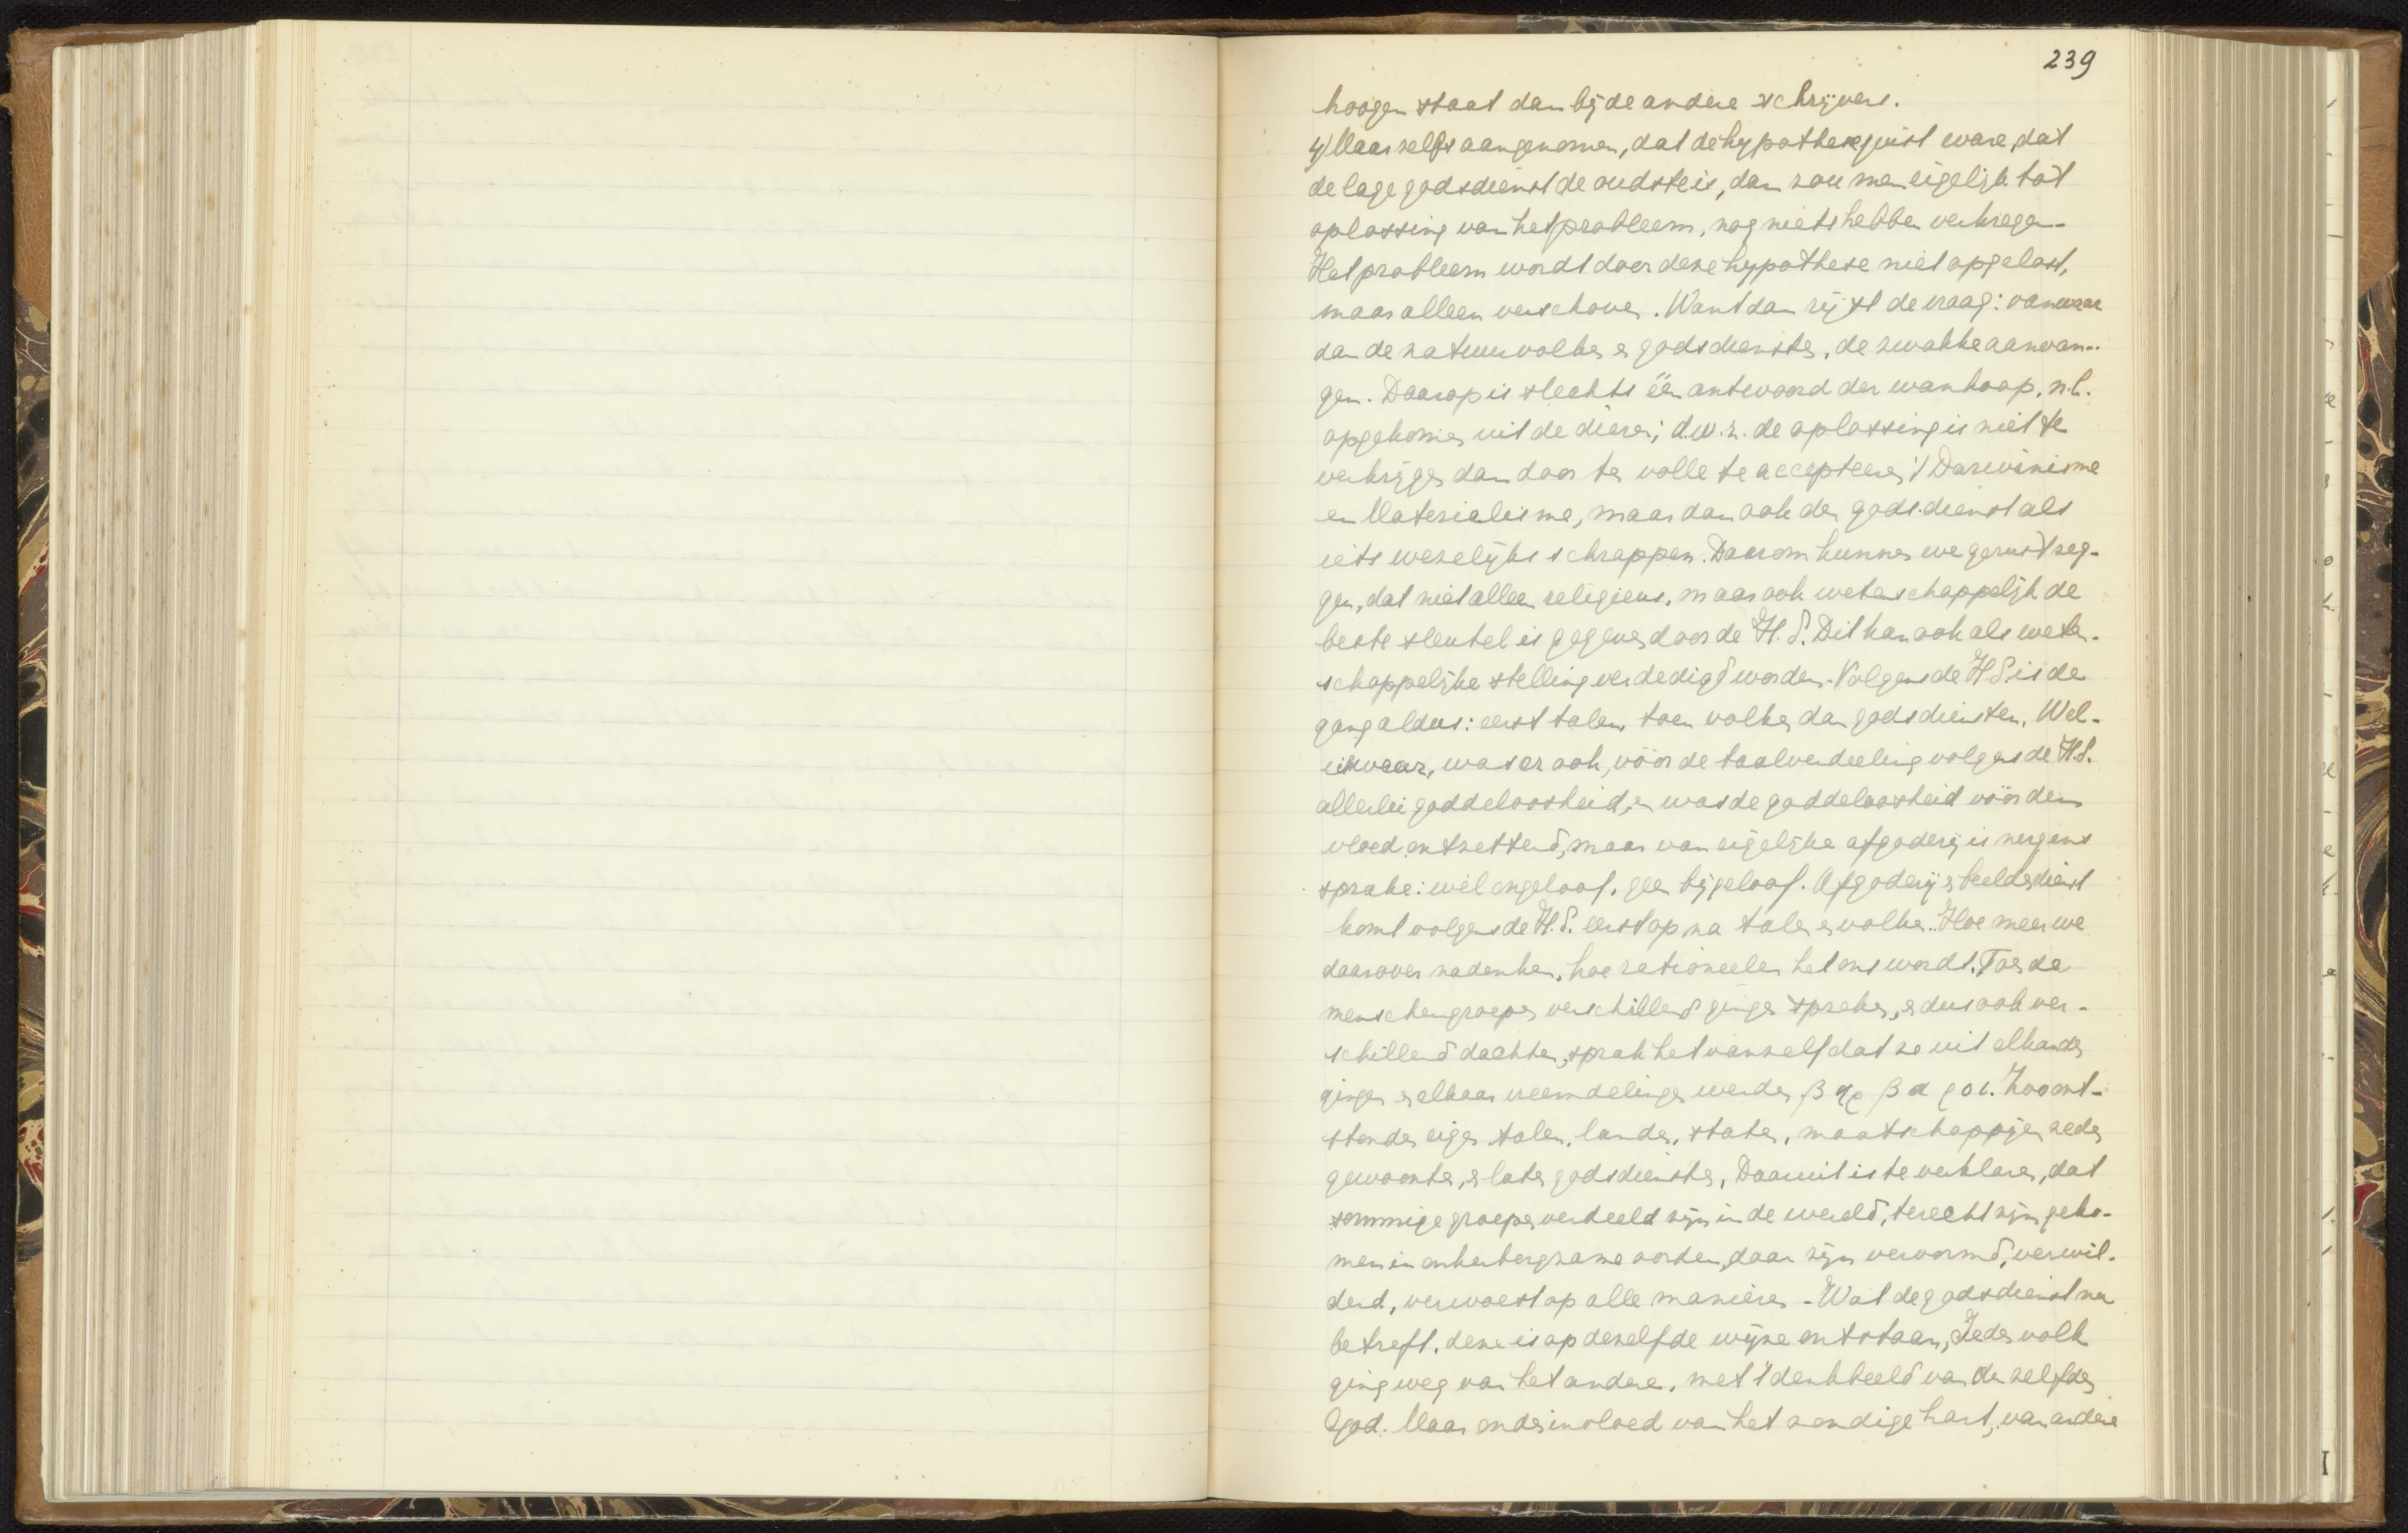 239
hooger staat dan bij de andere schrijvers.
4) Maar zelfs aangenomen, dat de hypothese juist ware, dat
de lage godsdienst de oudste is, dan zou men eigelijk tot
oplossing van het probleem, nog niets hebben verkregen.
Het probleem wordt door deze hypothese niet opgelost,
maar alleen verschoven. Want dan rijst de vraag: vanwaar
dan de natuurvolken en godsdiensten, de zwakke aanvan-
gen. Daarop is slechts één antwoord der wanhoop, n.l.
opgekomen uit de dieren; d.w.z. de oplossing is niet te
verkrijgen dan door ten volle te accepteeren 't Darwinisme
en Materialisme, maar dan ook den godsdienst als
iets wezelijks schrappen. Daarom kunnen we gerust zeg-
gen, dat niet alleen religieus, maar ook wetenschappelijk de
beste sleutel is gegeven door de H.S. Dit kan ook als weten-
schappelijke stelling verdedigd worden. Volgens de H.S. is de
gang aldus: eerst talen, toen volken, dan godsdiensten. Wel-
iswaar, was er ook, vóór de taalverdeeling volgens de H.S.
allerlei goddeloosheid, en was de goddeloosheid vóór den
vloed ontzettend, maar van eigelijke afgoderij is nergens
sprake: wèl ongeloof, geen bijgeloof. Afgoderij en beeldendienst
komt volgens de H.S. eerst op na talen en volken. Hoe meer we
daarover nadenken, hoe rationeeler het ons wordt. Toen de
menschengroepen verschillend gingen spreken, en dus ook ver-
schillend dachten, sprak het vanzelf dat ze uit elkander
gingen en elkaar vreemdelingen werden, βαρβαροι. Zoo ont-
stonden eigen talen, landen, staten, maatschappijen, zeden
gewoonten, en later godsdiensten. Daaruit is te verklaren, dat
sommige groepen verdeeld zijn in de wereld, terecht zijn geko-
men in onherbergzame oorden, daar zijn vervormd, verwil-
derd, verwoest op alle manieren. Wat de godsdienst nu
betreft, deze is op dezelfde wijze ontstaan. Ieder volk
ging weg van het andere, met 't denkbeeld van denzelfden
God. Maar onder invloed van het zondige hart, van andere